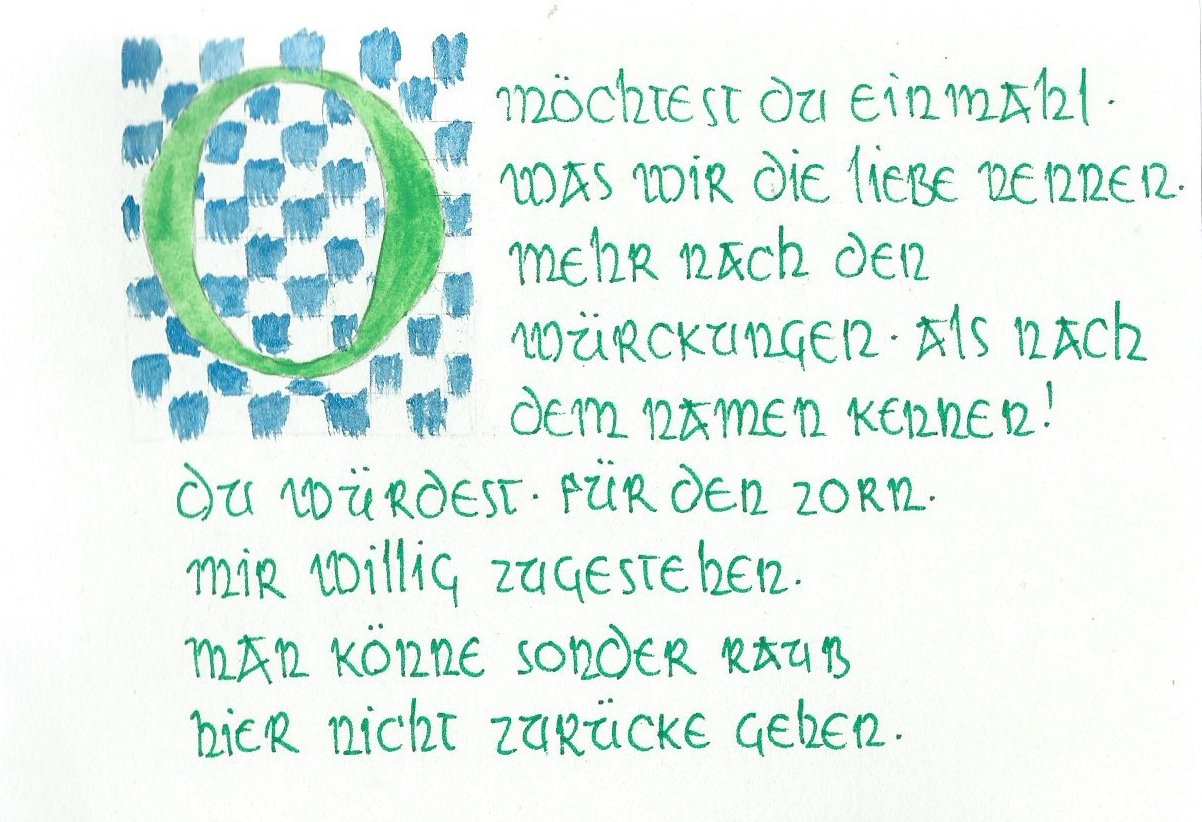 O möchtest du einmahl.
was wir die liebe nennen.
mehr nach den
würckungen. als nach
dem namen kennen!
du würdest. für den zorn.
mir willig zugestehen.
man könne sonder raub
hier nicht zurücke gehen.